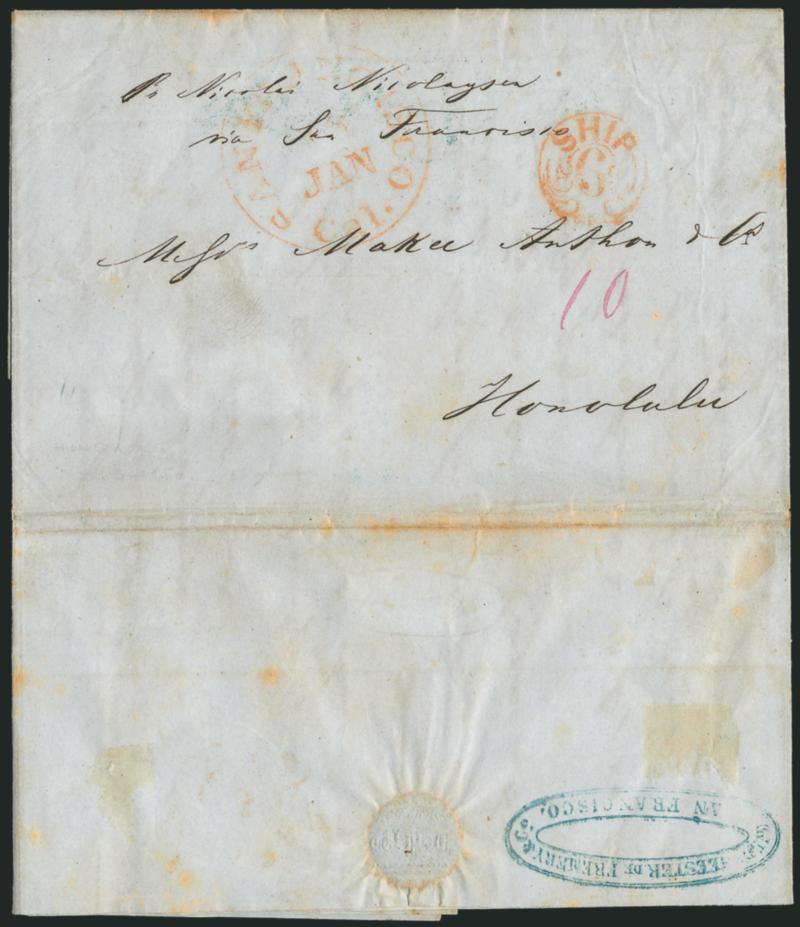 Pr Nicolai Nicolaysen
via San Francisco
SHIP
6
JAN
Cal.
Messrs Makee Anthon & Co
10
Honolulu
MEESTER DE FREMERY & Co.
SAN FRANCISCO.